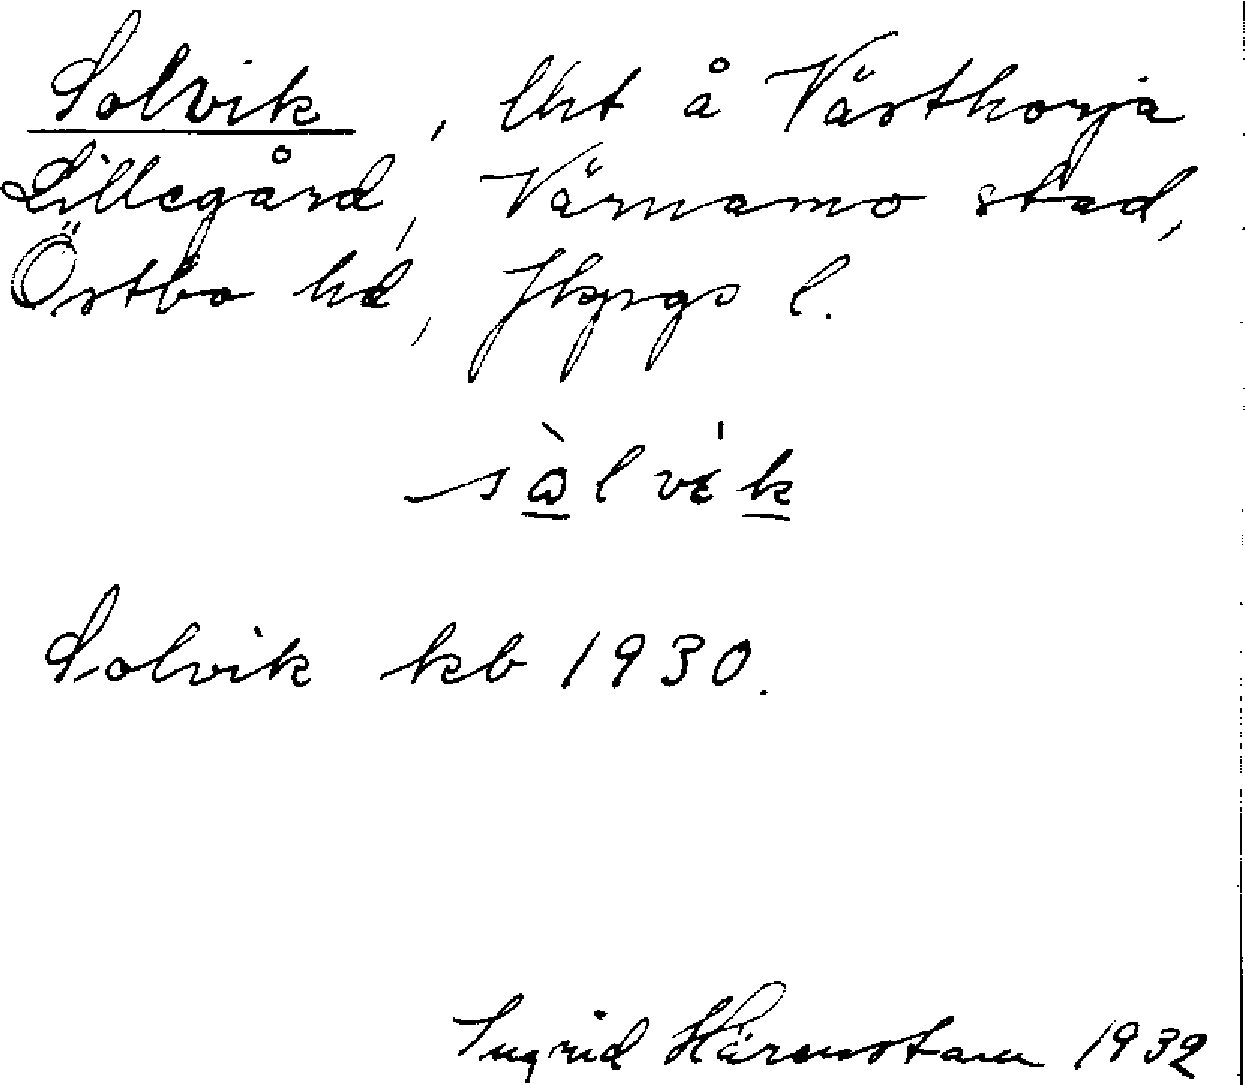 Solvik, lht å Västhorja
Lillegård, Värnamo stad,
Östbo hd, Jkpgs l.
sàlvik
Solvik kb 1930.
Ingrid Härenstam 1932